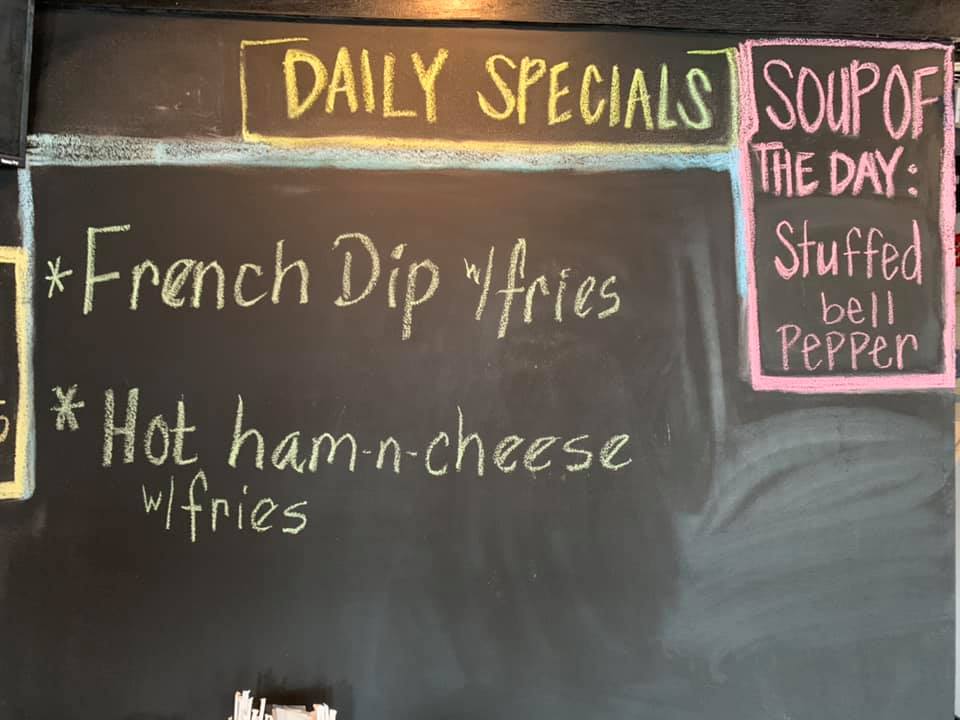 DAILY SPECIALS
*French Dip w/fries
*Hot ham-n-cheese
w/fries
SOUP OF
THE DAY:
Stuffed
bell
Pepper